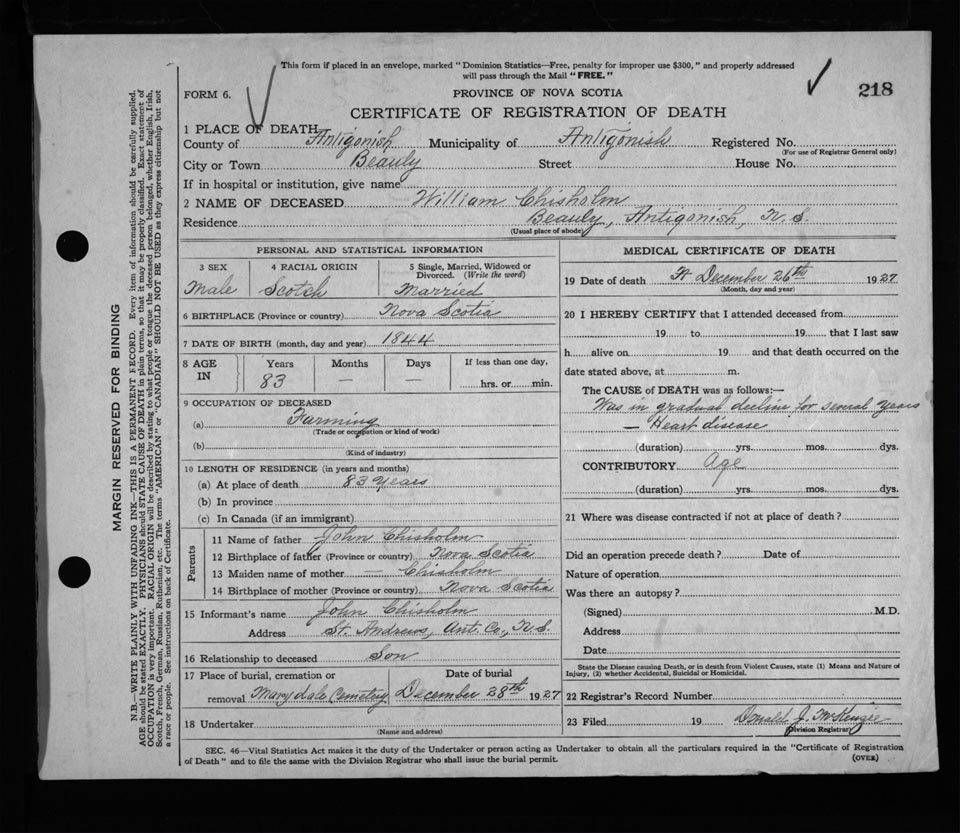 This form if placed in an envelope, marked "Dominion Statistics—Free, penalty for improper use $300," and properly addressed
will pass through the Mail "FREE."
218
FORM 6.
PROVINCE OF NOVA SCOTIA
CERTIFICATE OF REGISTRATION OF DEATH
1 PLACE OF DEATH
County of Antigonish Municipality of Antigonish Registered No.
(For use of Registrar General only)
City or Town Beauly Street House No.
If in hospital or institution, give name
2 NAME OF DECEASED William Chisholm
Residence Beauly, Antigonish, N.S.
(Usual place of abode)
PERSONAL AND STATISTICAL INFORMATION
3 SEX 4 RACIAL ORIGIN 5 Single, Married, Widowed or
Divorced. (Write the word)
Male Scotch Married
6 BIRTHPLACE (Province or country) Nova Scotia
7 DATE OF BIRTH (month, day and year) 1844
8 AGE IN Years Months Days If less than one day,
83 — — hrs. or min.
9 OCCUPATION OF DECEASED
(a) Farming
(Trade or occupation or kind of work)
(b)
(Kind of industry)
10 LENGTH OF RESIDENCE (in years and months)
(a) At place of death 83 Years
(b) In province
(c) In Canada (if an immigrant)
Parents
11 Name of father John Chisholm
12 Birthplace of father (Province or country) Nova Scotia
13 Maiden name of mother — Chisholm
14 Birthplace of mother (Province or country) Nova Scotia
15 Informant's name John Chisholm
Address St. Andrews, Ant. Co., N.S.
16 Relationship to deceased Son
17 Place of burial, cremation or Date of burial
removal Marydale Cemetery December 28th 1927
18 Undertaker
(Name and address)
MEDICAL CERTIFICATE OF DEATH
19 Date of death December 26th 1927
(Month, day and year)
20 I HEREBY CERTIFY that I attended deceased from
19 to 19 that I last saw
h alive on 19 and that death occurred on the
date stated above, at m.
The CAUSE of DEATH was as follows:—
Was in gradual decline for several years
— Heart disease
(duration) yrs. mos. dys.
CONTRIBUTORY Age
(duration) yrs. mos. dys.
21 Where was disease contracted if not at place of death?
Did an operation precede death? Date of
Nature of operation
Was there an autopsy?
(Signed) M.D.
Address
Date
State the Disease causing Death, or in death from Violent Causes, state (1) Means and Nature of
Injury, (2) whether Accidental, Suicidal or Homicidal.
22 Registrar's Record Number
23 Filed 19 Donald J. McKenzie
Division Registrar
SEC. 46—Vital Statistics Act makes it the duty of the Undertaker or person acting as Undertaker to obtain all the particulars required in the "Certificate of Registration
of Death" and to file the same with the Division Registrar who shall issue the burial permit.
(OVER)
MARGIN RESERVED FOR BINDING
N.B.—WRITE PLAINLY WITH UNFADING INK—THIS IS A PERMANENT RECORD. Every item of information should be carefully supplied.
AGE should be stated EXACTLY. PHYSICIANS should STATE CAUSE OF DEATH in plain terms, so that it may be properly classified. Exact statement of
OCCUPATION is very important. RACIAL ORIGIN will be described by stating to what people or tongue the deceased person belonged, whether English, Irish,
Scotch, French, German, Russian, Ruthenian, etc. The terms "AMERICAN" or "CANADIAN" SHOULD NOT BE USED as they express citizenship but not
a race or people. See instructions on back of Certificate.